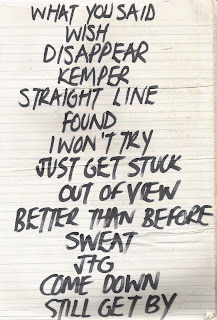 WHAT YOU SAID
WISH
DISAPPEAR
KEMPER
STRAIGHT LINE
FOUND
I WON'T TRY
JUST GET STUCK
OUT OF VIEW
BETTER THAN BEFORE
SWEAT
JTG
COME DOWN
STILL GET BY